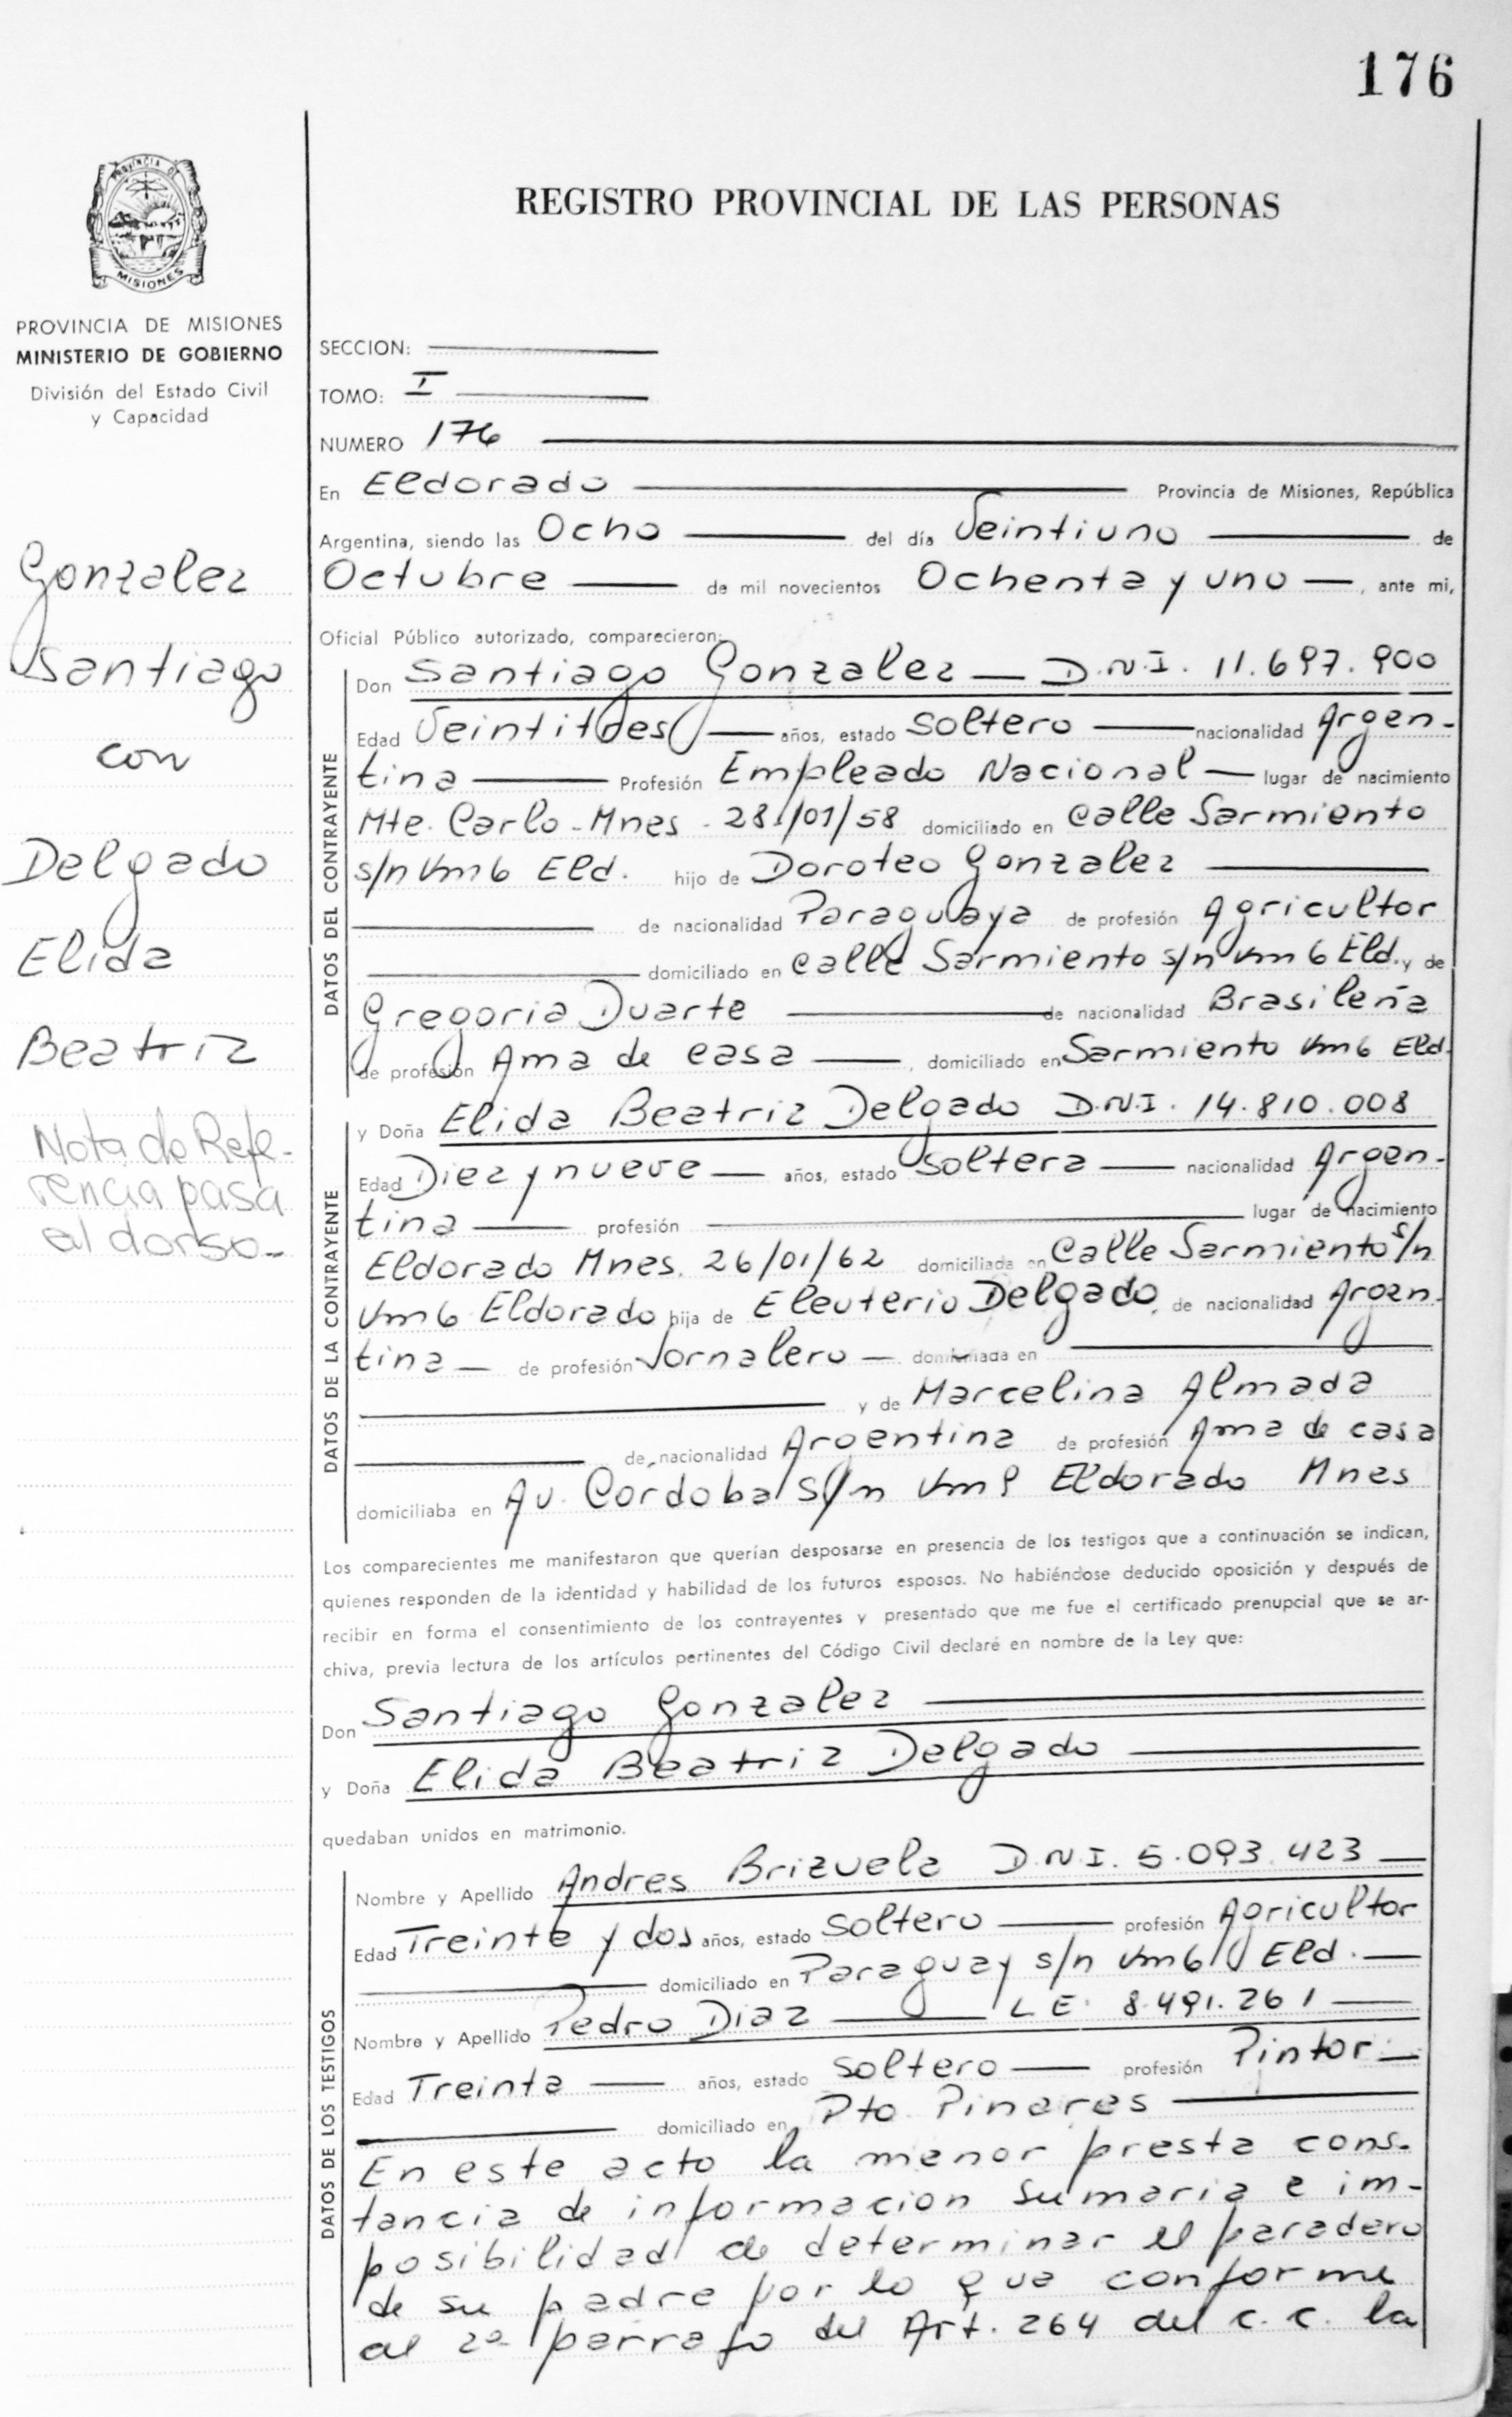 176
PROVINCIA DE
MISIONES
PROVINCIA DE MISIONES
MINISTERIO DE GOBIERNO
División del Estado Civil
y Capacidad
Gonzalez
Santiago
con
Delgado
Elida
Beatriz
Nota de Refe-
rencia pasa
al dorso.-
REGISTRO PROVINCIAL DE LAS PERSONAS
SECCION:
TOMO: I
NUMERO 176
En Eldorado Provincia de Misiones, República
Argentina, siendo las Ocho del día Veintiuno de
Octubre de mil novecientos Ochenta y uno, ante mi,
Oficial Público autorizado, comparecieron:
DATOS DEL CONTRAYENTE
Don Santiago Gonzalez D.N.I. 11.697.900
Edad años, estado Soltero nacionalidad Argen-
tina Profesión Empleado Nacional lugar de nacimiento
Mte. Carlo - Mnes - 28/01/58 domiciliado en Calle Sarmiento
s/n Km 6 Eld. hijo de Doroteo Gonzalez
de nacionalidad Paraguaya de profesión Agricultor
domiciliado en Calle Sarmiento s/n Km 6 Eld. y de
Gregoria Duarte de nacionalidad Brasileña
de profesión Ama de casa, domiciliado en Sarmiento Km 6 Eld.
DATOS DE LA CONTRAYENTE
y Doña Elida Beatriz Delgado D.N.I. 14.810.008
Edad Diez y nueve años, estado Soltera nacionalidad Argen-
tina profesión lugar de nacimiento
Eldorado Mnes. 26/01/62 domiciliada en Calle Sarmiento s/n
Km 6 Eldorado hija de Eleuterio Delgado, de nacionalidad Argen-
tina de profesión Jornalero domiciliada en
y de Marcelina Almada
de nacionalidad Argentina de profesión Ama de casa
domiciliaba en Av. Cordoba s/n Km 9 Eldorado Mnes
Los comparecientes me manifestaron que querían desposarse en presencia de los testigos que a continuación se indican,
quienes responden de la identidad y habilidad de los futuros esposos. No habiéndose deducido oposición y después de
recibir en forma el consentimiento de los contrayentes y presentado que me fue el certificado prenupcial que se ar-
chiva, previa lectura de los artículos pertinentes del Código Civil declaré en nombre de la Ley que:
Don Santiago Gonzalez
y Doña Elida Beatriz Delgado
quedaban unidos en matrimonio.
DATOS DE LOS TESTIGOS
Nombre y Apellido Andres Brizuela D.N.I. 5.093.423
Edad Treinta y dos años, estado Soltero profesión Agricultor
domiciliado en Paraguay s/n Km 6 Eld.
Nombre y Apellido Pedro Diaz L.E. 8.491.261
Edad Treinta años, estado Soltero profesión Pintor
domiciliado en Pto. Pinares
En este acto la menor presta cons-
tancia de informacion sumaria e im-
posibilidad de determinar el paradero
de su padre por lo que conforme
al 2º parrafo del Art. 264 del c.c. la